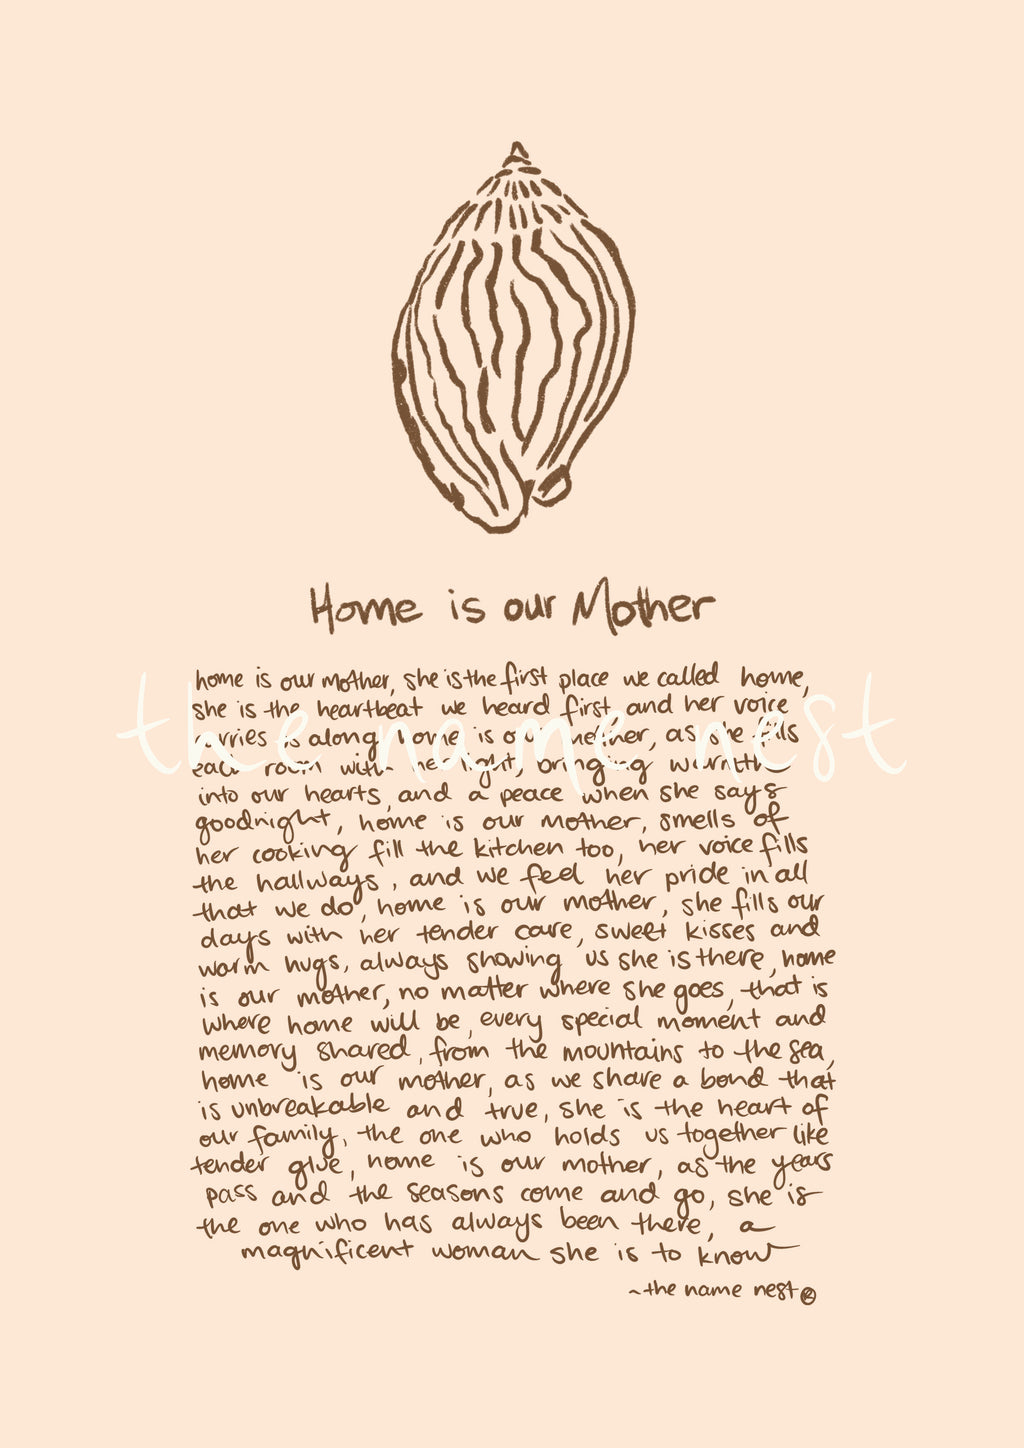 Home is our Mother
home is our mother, she is the first place we called home,
she is the heartbeat we heard first and her voice
carries us along, home is our mother, as she fills
each room with her light, bringing warmth
into our hearts, and a peace when she says
goodnight, home is our mother, smells of
her cooking fill the kitchen too, her voice fills
the hallways, and we feel her pride in all
that we do, home is our mother, she fills our
days with her tender care, sweet kisses and
warm hugs, always showing us she is there, home
is our mother, no matter where she goes, that is
where home will be, every special moment and
memory shared, from the mountains to the sea,
home is our mother, as we share a bond that
is unbreakable and true, she is the heart of
our family, the one who holds us together like
tender glue, home is our mother, as the years
pass and the seasons come and go, she is
the one who has always been there, a
magnificent woman she is to know
~the name nest®
the name nest